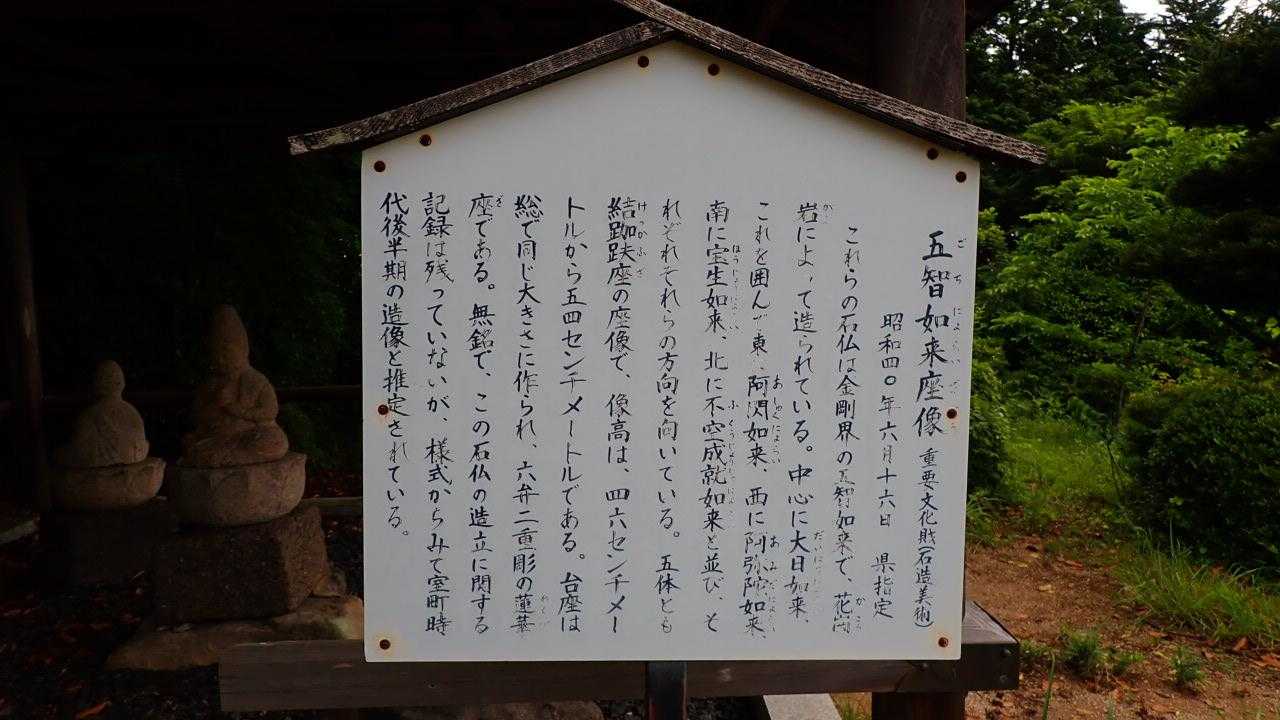 五智如来座像 重要文化財(石造美術)
昭和四〇年六月十六日 県指定
これらの石仏は金剛界の五智如来で、花崗
岩によって造られている。中心に大日如来、
これを囲んで東、阿閦如来、西に阿弥陀如来
南に宝生如来、北に不空成就如来と並び、そ
れぞれそれらの方向を向いている。五体とも
結跏趺座の座像で、像高は、四六センチメー
トルから五四センチメートルである。台座は
総で同じ大きさに作られ、六弁二重彫の蓮華
座である。無銘で、この石仏の造立に関する
記録は残っていないが、様式からみて室町時
代後半期の造像と推定されている。